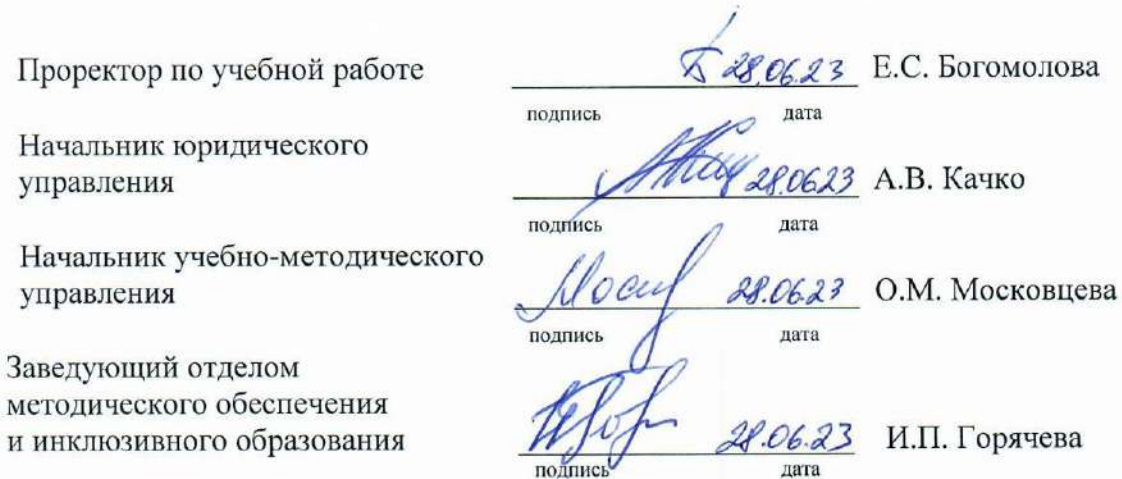 Проректор по учебной работе 28.06.23 Е.С. Богомолова
подпись дата
Начальник юридического
управления 28.06.23 А.В. Качко
подпись дата
Начальник учебно-методического
управления 28.06.23 О.М. Московцева
подпись дата
Заведующий отделом
методического обеспечения
и инклюзивного образования 28.06.23 И.П. Горячева
подпись дата